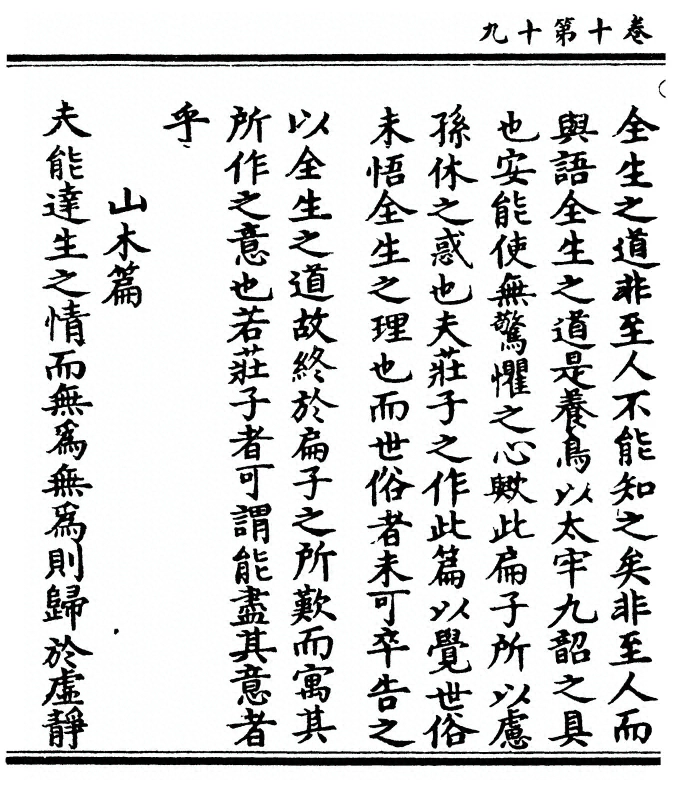 卷十第十九
全生之道非至人不能知之矣非至人而
與語全生之道是養鳥以太牢九韶之具
也安能使無驚懼之心歟此扁子所以慮
孫休之惑也夫莊子之作此篇以覺世俗
未悟全生之理也而世俗者未可卒告之
以全生之道故終於扁子之所歎而寓其
所作之意也若莊子者可謂能盡其意者
乎
山木篇
夫能達生之情而無為無為則歸於虛靜